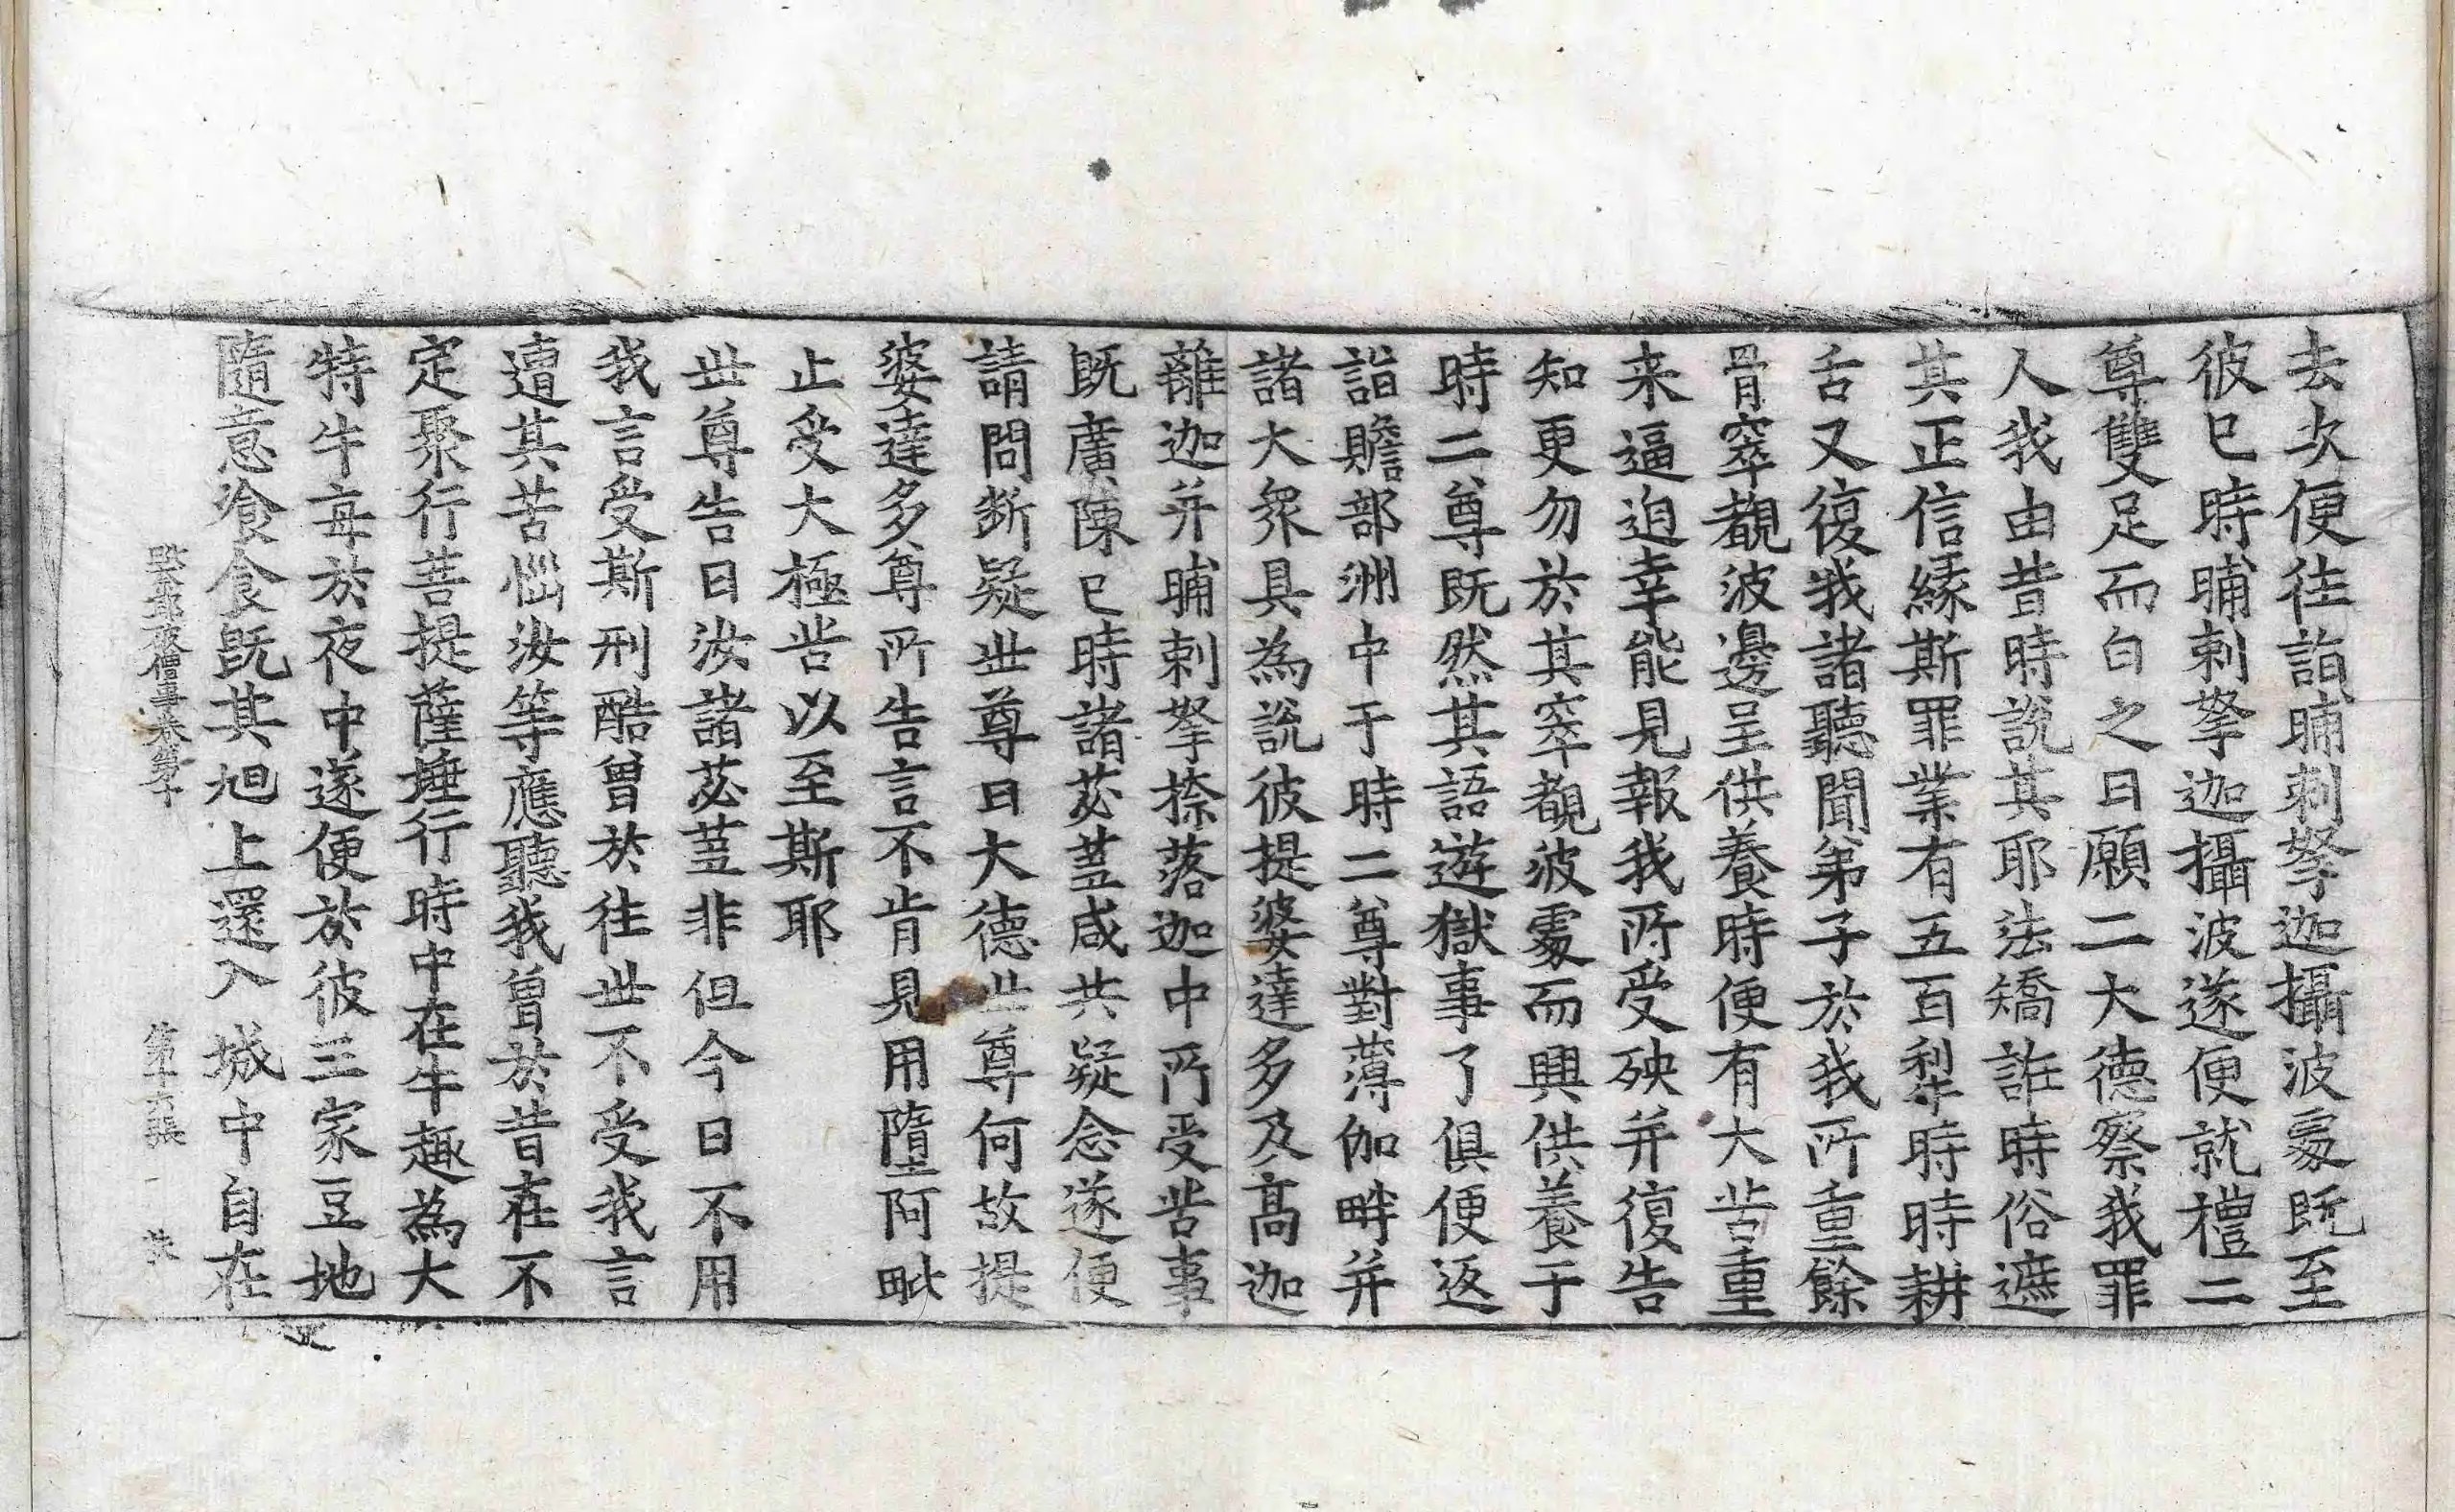 去次便往詣晡剌拏迦攝波處既至
彼已時晡剌拏迦攝波遂便就禮二
尊雙足而白之曰願二大德察我罪
人我由昔時說其耶法矯誑時俗遮
其正信緣斯罪業有五百犁時時耕
舌又復我諸聽聞弟子於我所重餘
骨窣覩波邊呈供養時便有大苦重
来逼迫幸能見報我所受殃并復告
知更勿於其窣覩波處而興供養于
時二尊既然其語遊獄事了俱便返
詣贍部洲中于時二尊對薄伽畔并
諸大衆具為說彼提婆達多及高迦
離迦并晡剌拏捺落迦中所受苦事
既廣陳已時諸苾芻咸共疑念遂便
請問斷疑世尊曰大德世尊何故提
婆達多尊所告言不肯見用墮阿毗
止受大極苦以至斯耶
世尊告曰汝諸苾芻非但今日不用
我言受斯刑酷曾於往世不受我言
遭其苦惱汝等應聽我曾於昔在不
定聚行菩提薩埵行時中在牛趣為大
特牛每於夜中遂便於彼王家豆地
隨意飡食既其旭上還入城中自在
僧事卷第十 第十六張